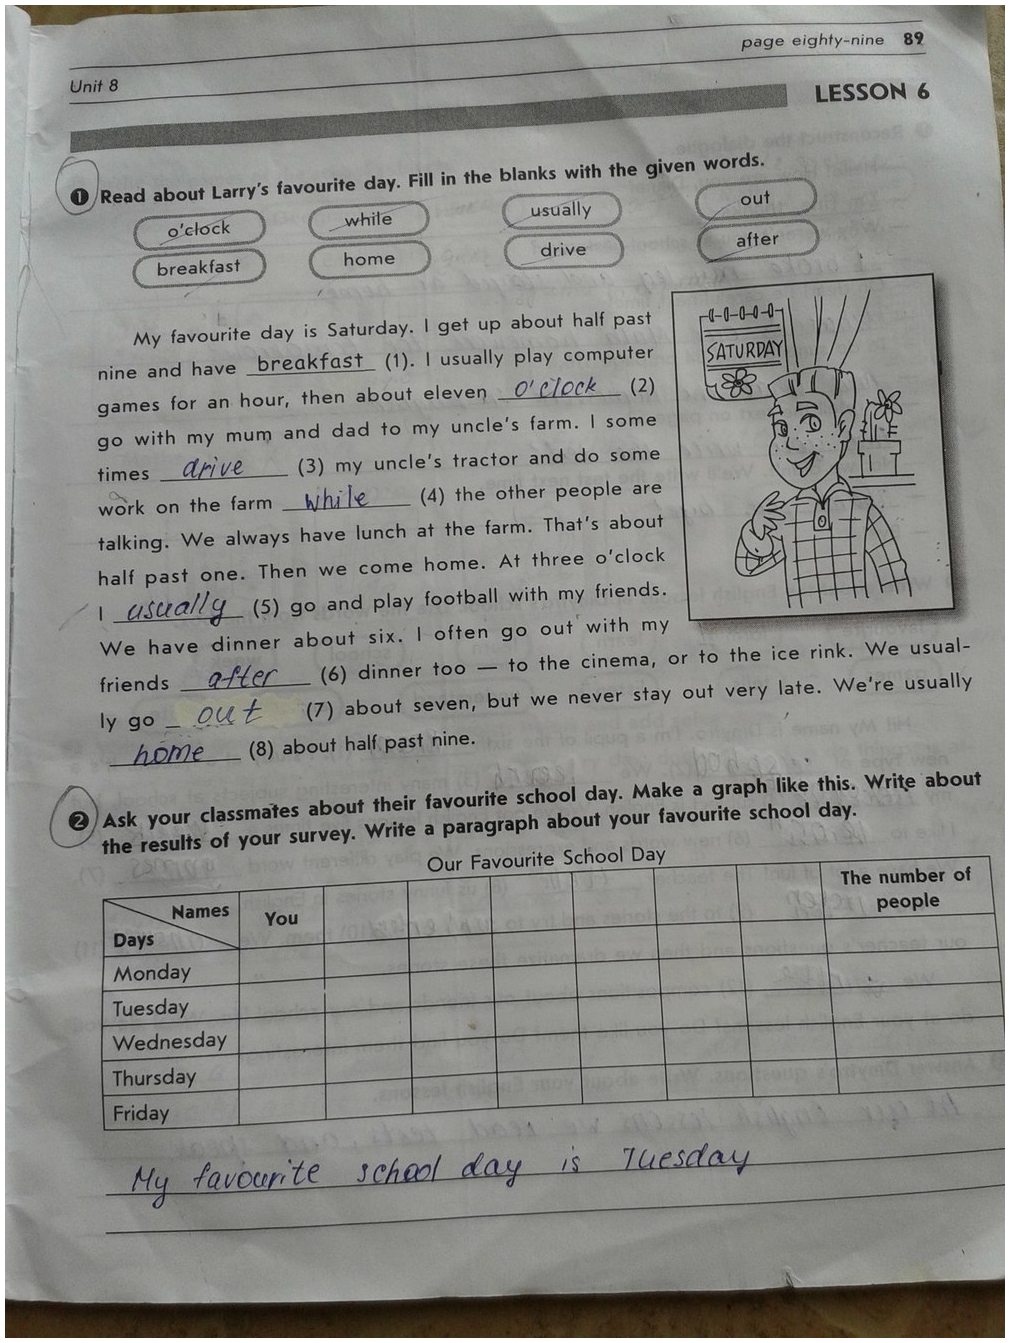 page eighty-nine 89
Unit 8
LESSON 6
1 Read about Larry's favourite day. Fill in the blanks with the given words.
o'clock while usually out
breakfast home drive after
My favourite day is Saturday. I get up about half past
nine and have breakfast (1). I usually play computer
games for an hour, then about eleven o'clock (2)
go with my mum and dad to my uncle's farm. I some
times drive (3) my uncle's tractor and do some
work on the farm while (4) the other people are
talking. We always have lunch at the farm. That's about
half past one. Then we come home. At three o'clock
I usually (5) go and play football with my friends.
We have dinner about six. I often go out with my
friends after (6) dinner too — to the cinema, or to the ice rink. We usual-
ly go out (7) about seven, but we never stay out very late. We're usually
home (8) about half past nine.
SATURDAY
2 Ask your classmates about their favourite school day. Make a graph like this. Write about
the results of your survey. Write a paragraph about your favourite school day.
Our Favourite School Day
Names You The number of
people
Days
Monday
Tuesday
Wednesday
Thursday
Friday
My favourite school day is Tuesday